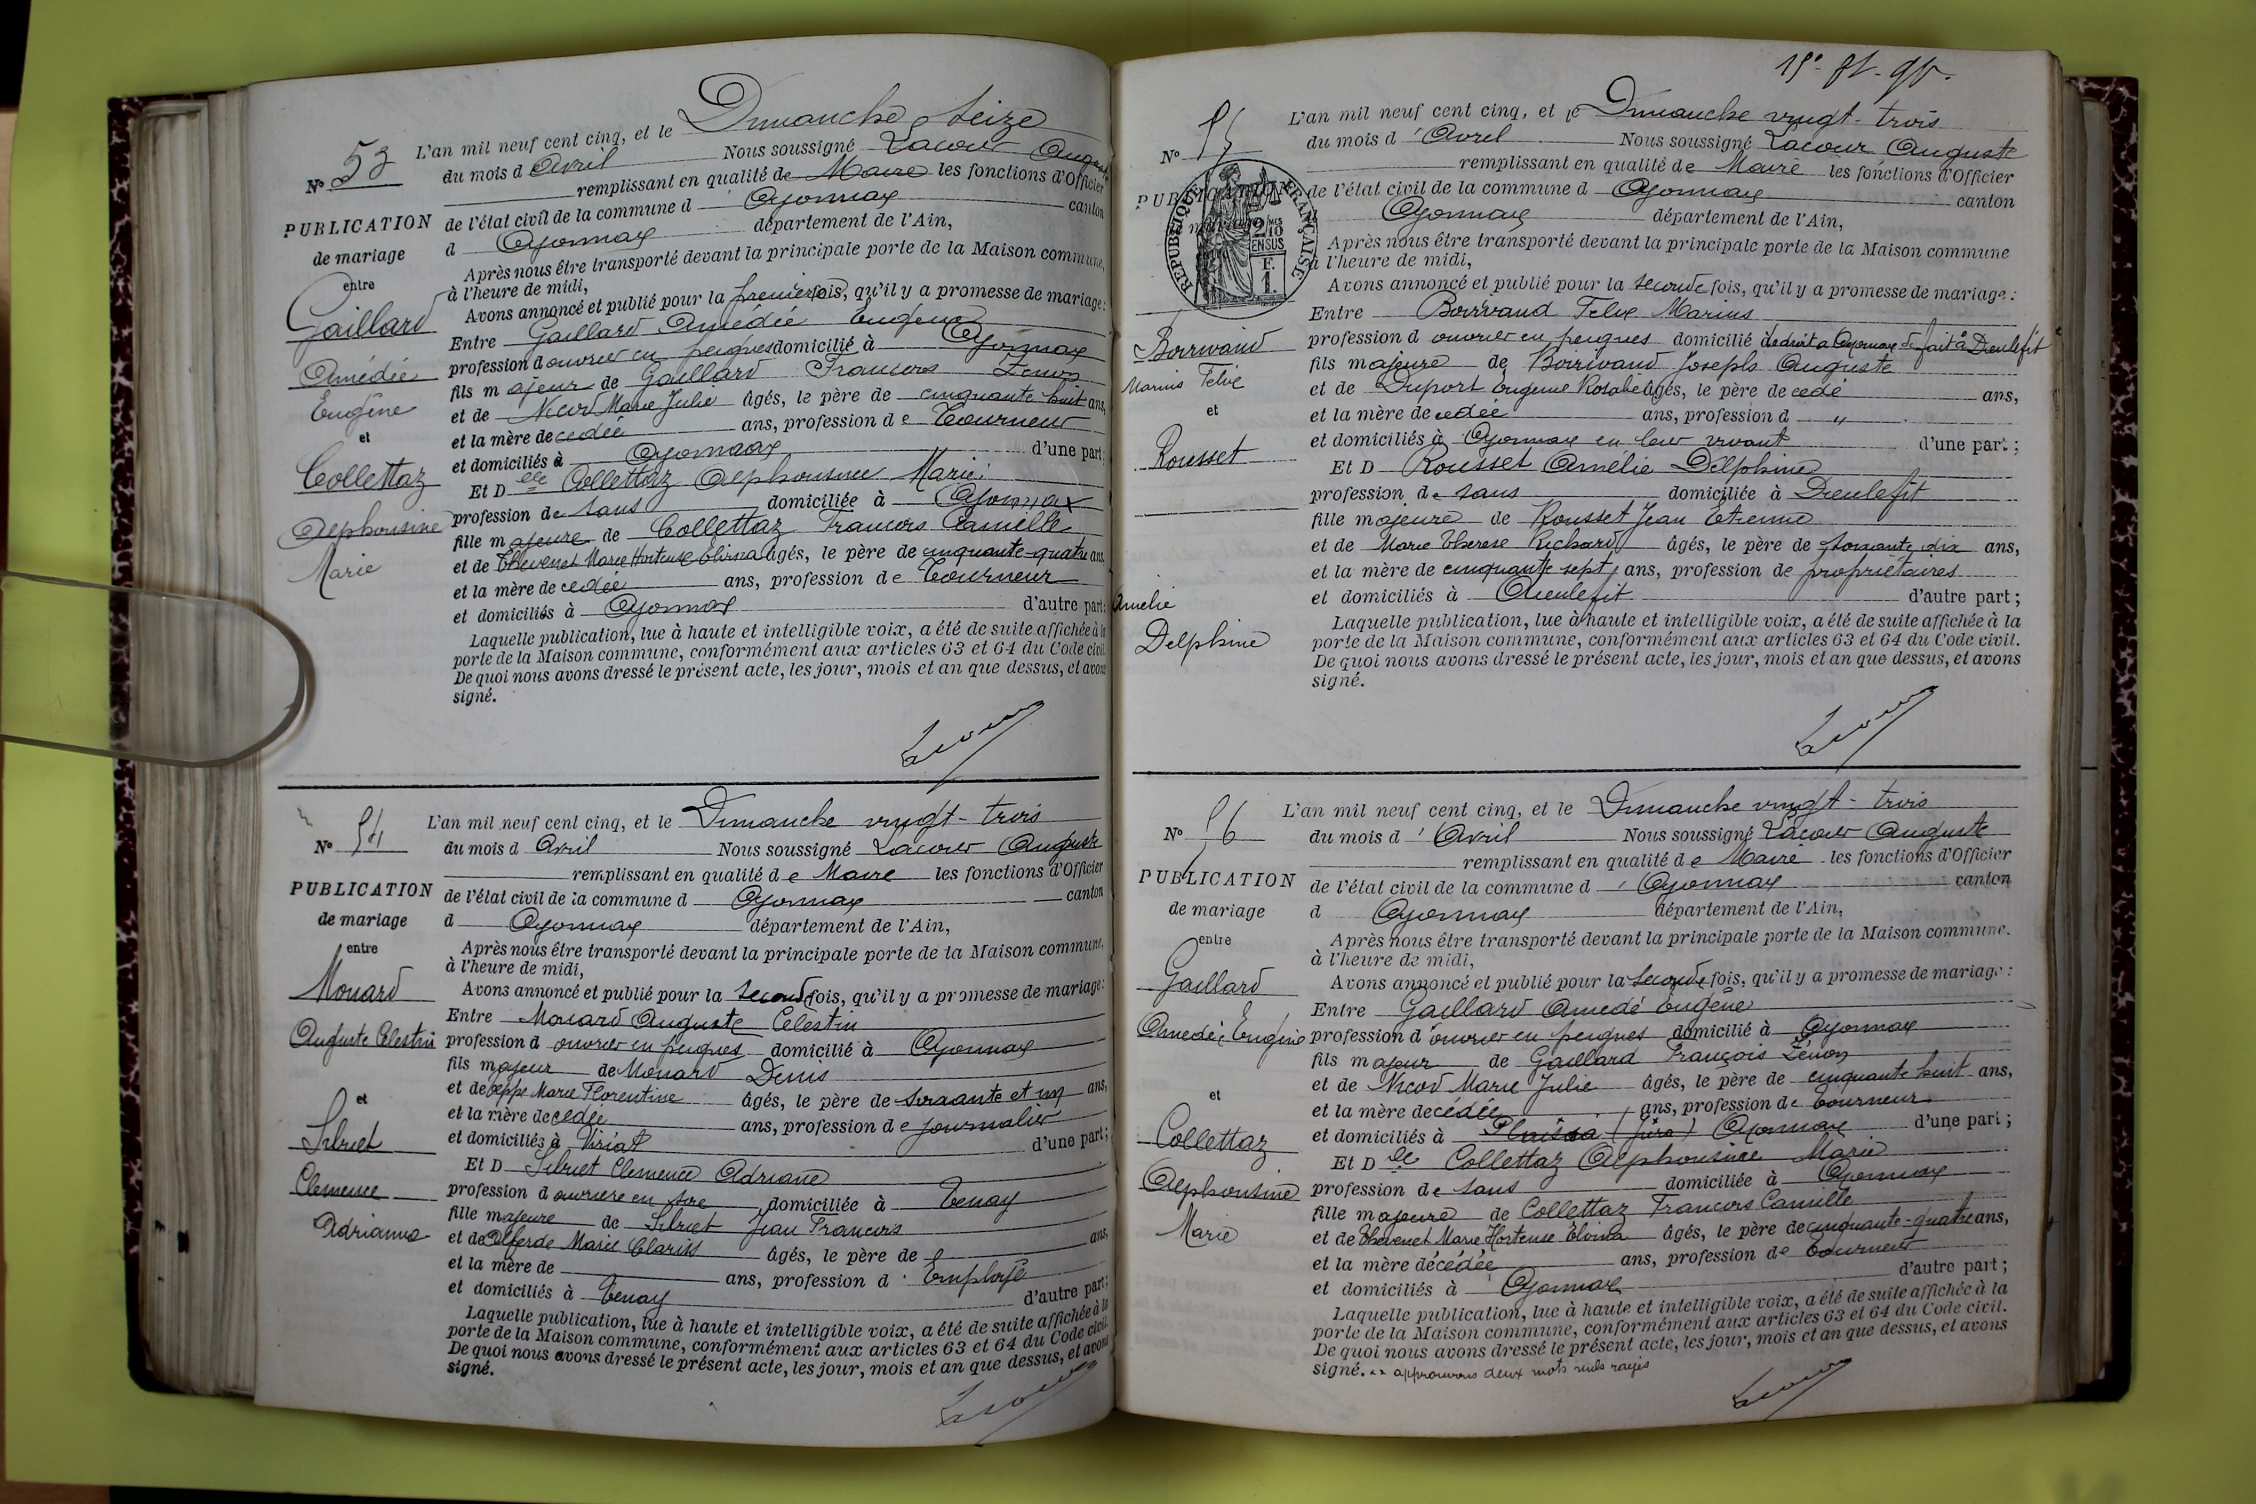 Nº 53
PUBLICATION
de mariage
entre
Gaillard
Amédée
Eugène
et
Collettaz
Alphonsine
Marie
L'an mil neuf cent cinq, et le Dimanche seize
du mois d Avril Nous soussigné Lacour Auguste
remplissant en qualité de Maire les fonctions d'Officier
de l'état civil de la commune d Oyonnax canton
d Oyonnax département de l'Ain,
Après nous être transporté devant la principale porte de la Maison commune,
à l'heure de midi,
Avons annoncé et publié pour la première fois, qu'il y a promesse de mariage:
Entre Gaillard Amédée Eugène
profession d ouvrier en peignes domicilié à Oyonnax
fils majeur de Gaillard Francois Zenon
et de Nicod Marie Julie âgés, le père de cinquante huit ans,
et la mère decedée ans, profession de Tourneur
et domiciliés à Oyonnax d'une part;
Et D elle Collettaz Alphonsine Marie
profession de sans domiciliée à Oyonnax
fille majeure de Collettaz Francois Camille
et de Thevenet Marie Hortense Elvina âgés, le père de cinquante-quatre ans,
et la mère decedée ans, profession de Tourneur
et domiciliés à Oyonnax d'autre part;
Laquelle publication, lue à haute et intelligible voix, a été de suite affichée à la
porte de la Maison commune, conformément aux articles 63 et 64 du Code civil.
De quoi nous avons dressé le présent acte, les jour, mois et an que dessus, et avons
signé.
Lacour
Nº 54
PUBLICATION
de mariage
entre
Monard
Auguste Celestin
et
Silvet
Clemence
Adrianne
L'an mil neuf cent cinq, et le Dimanche vingt-trois
du mois d Avril Nous soussigné Lacour Auguste
remplissant en qualité de Maire les fonctions d'Officier
de l'état civil de la commune d Oyonnax canton
d Oyonnax département de l'Ain,
Après nous être transporté devant la principale porte de la Maison commune,
à l'heure de midi,
Avons annoncé et publié pour la seconde fois, qu'il y a promesse de mariage:
Entre Monard Auguste Célestin
profession d ouvrier en peignes domicilié à Oyonnax
fils majeur de Monard Denis
et de Marie Florentine âgés, le père de soixante et un ans,
et la mère decedée ans, profession de journalier
et domiciliés à Viriat d'une part;
Et D Silvet Clemence Adriane
profession d ouvrière en soie domiciliée à Tenay
fille majeure de Silvet Jean Francois
et de Marie Clariss âgés, le père de ans,
et la mère de ans, profession d' Employé
et domiciliés à Tenay d'autre part;
Laquelle publication, lue à haute et intelligible voix, a été de suite affichée à la
porte de la Maison commune, conformément aux articles 63 et 64 du Code civil.
De quoi nous avons dressé le présent acte, les jour, mois et an que dessus, et avons
signé.
Lacour
Nº 55
PUBLICATION
mariage
RÉPUBLIQUE FRANÇAISE
2/10
EN SUS
F.
1.
Boirivaud
Marius Felix
et
Rousset
Amelie
Delphine
L'an mil neuf cent cinq, et le Dimanche vingt-trois
du mois d'Avril Nous soussigné Lacour Auguste
remplissant en qualité de Maire les fonctions d'Officier
de l'état civil de la commune d Oyonnax canton
Oyonnax département de l'Ain,
Après nous être transporté devant la principale porte de la Maison commune
à l'heure de midi,
Avons annoncé et publié pour la seconde fois, qu'il y a promesse de mariage:
Entre Boirivaud Felix Marius
profession d ouvrier en peignes domicilié de droit a Oyonnax de fait à Dieulefit
fils majeure de Boirivaud Joseph Auguste
et de Duport Eugenie Rosalie âgés, le père decedé ans,
et la mère decedée ans, profession d "
et domiciliés à Oyonnax en leur vivant d'une part;
Et D Rousset Amélie Delphine
profession de sans domiciliée à Dieulefit
fille majeure de Rousset Jean Etienne
et de Marie Therese Richard âgés, le père de soixante dix ans,
et la mère de cinquante sept ans, profession de propriétaires
et domiciliés à Dieulefit d'autre part;
Laquelle publication, lue à haute et intelligible voix, a été de suite affichée à la
porte de la Maison commune, conformément aux articles 63 et 64 du Code civil.
De quoi nous avons dressé le présent acte, les jour, mois et an que dessus, et avons
signé.
Lacour
Nº 56
PUBLICATION
de mariage
entre
Gaillard
Amedée Eugène
et
Collettaz
Alphonsine
Marie
L'an mil neuf cent cinq, et le Dimanche vingt-trois
du mois d'Avril Nous soussigné Lacour Auguste
remplissant en qualité de Maire les fonctions d'Officier
de l'état civil de la commune d'Oyonnax canton
d Oyonnax département de l'Ain,
Après nous être transporté devant la principale porte de la Maison commune.
à l'heure de midi,
Avons annoncé et publié pour la seconde fois, qu'il y a promesse de mariage:
Entre Gaillard Amedé Eugène
profession d'ouvrier en peignes domicilié à Oyonnax
fils majeur de Gaillard François Zénon
et de Nicod Marie Julie âgés, le père de cinquante huit ans,
et la mère decédée ans, profession de tourneur
et domiciliés à (Jura) Oyonnax d'une part;
Et D lle Collettaz Alphonsine Marie
profession de sans domiciliée à Oyonnax
fille majeure de Collettaz Francois Camille
et de Thevenet Marie Hortense Elvina âgés, le père de cinquante-quatre ans,
et la mère décédée ans, profession de Tourneur
et domiciliés à Oyonnax d'autre part;
Laquelle publication, lue à haute et intelligible voix, a été de suite affichée à la
porte de la Maison commune, conformément aux articles 63 et 64 du Code civil.
De quoi nous avons dressé le présent acte, les jour, mois et an que dessus, et avons
signé. approuvons deux mots nuls rayés
Lacour